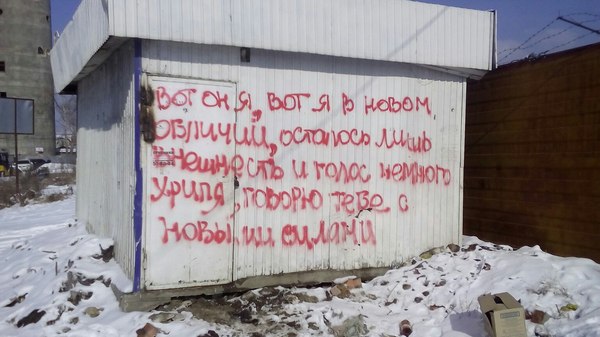 Вот он я, вот я в новом
обличии, осталось лишь
внешность и голос немного
хрипя, говорю тебе с
новыми силами